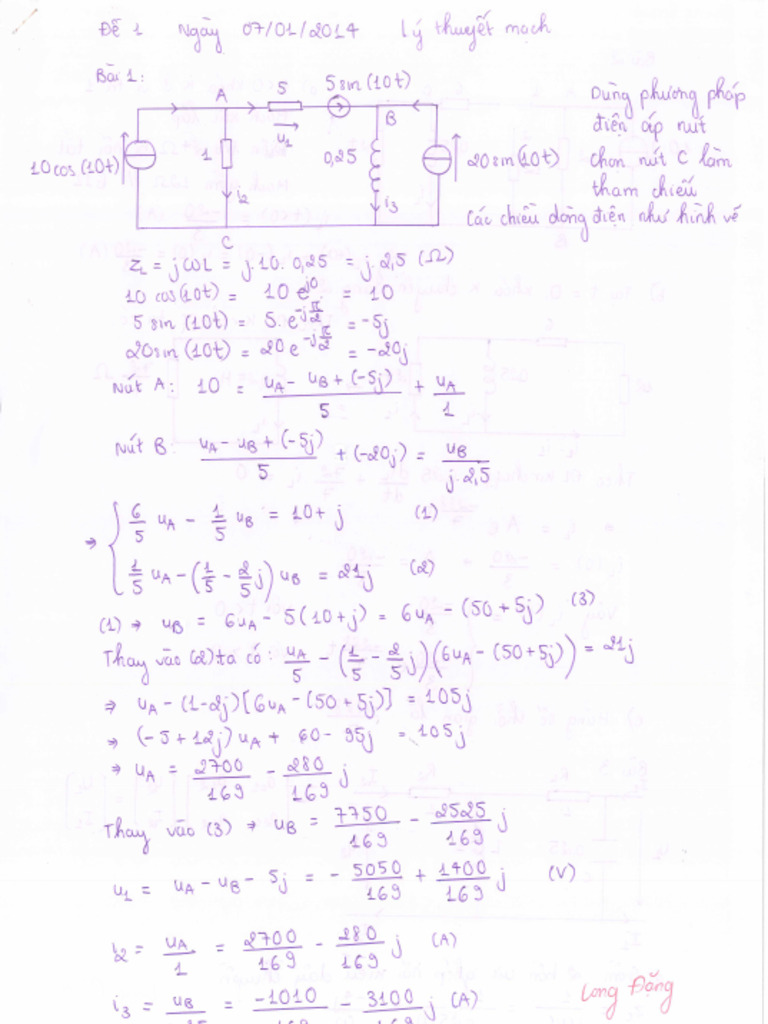 Đề 1 Ngày 07/01/2014 Lý thuyết mạch
Bài 1:
A 5 5sin(10t)
u₁
B
10cos(10t) 1 0,25 20sin(10t)
i₂ i₃
C
Dùng phương pháp
điện áp nút
Chọn nút C làm
tham chiếu
Các chiều dòng điện như hình vẽ
Z_L = jωL = j.10.0,25 = j.2,5 (Ω)
10 cos(10t) = 10 e^{j0} = 10
5 sin(10t) = 5.e^{-jπ/2} = -5j
20sin(10t) = 20 e^{-jπ/2} = -20j
Nút A: 10 = (u_A - u_B + (-5j))/5 + u_A/1
Nút B: (u_A - u_B + (-5j))/5 + (-20j) = u_B/(j.2,5)
⇒ { 6/5 u_A - 1/5 u_B = 10 + j (1)
1/5 u_A - (1/5 - 2/5 j) u_B = 21j (2)
(1) ⇒ u_B = 6u_A - 5(10+j) = 6u_A - (50+5j) (3)
Thay vào (2) ta có: u_A/5 - (1/5 - 2/5 j)(6u_A - (50+5j)) = 21j
⇒ u_A - (1-2j)[6u_A - (50+5j)] = 105j
⇒ (-5+12j) u_A + 60 - 95j = 105j
⇒ u_A = 2700/169 - 280/169 j
Thay vào (3) ⇒ u_B = 7750/169 - 2525/169 j
u₁ = u_A - u_B - 5j = - 5050/169 + 1400/169 j (V)
i₂ = u_A/1 = 2700/169 - 280/169 j (A)
i₃ = u_B = -1010 - 3100 j (A)
Long Đặng